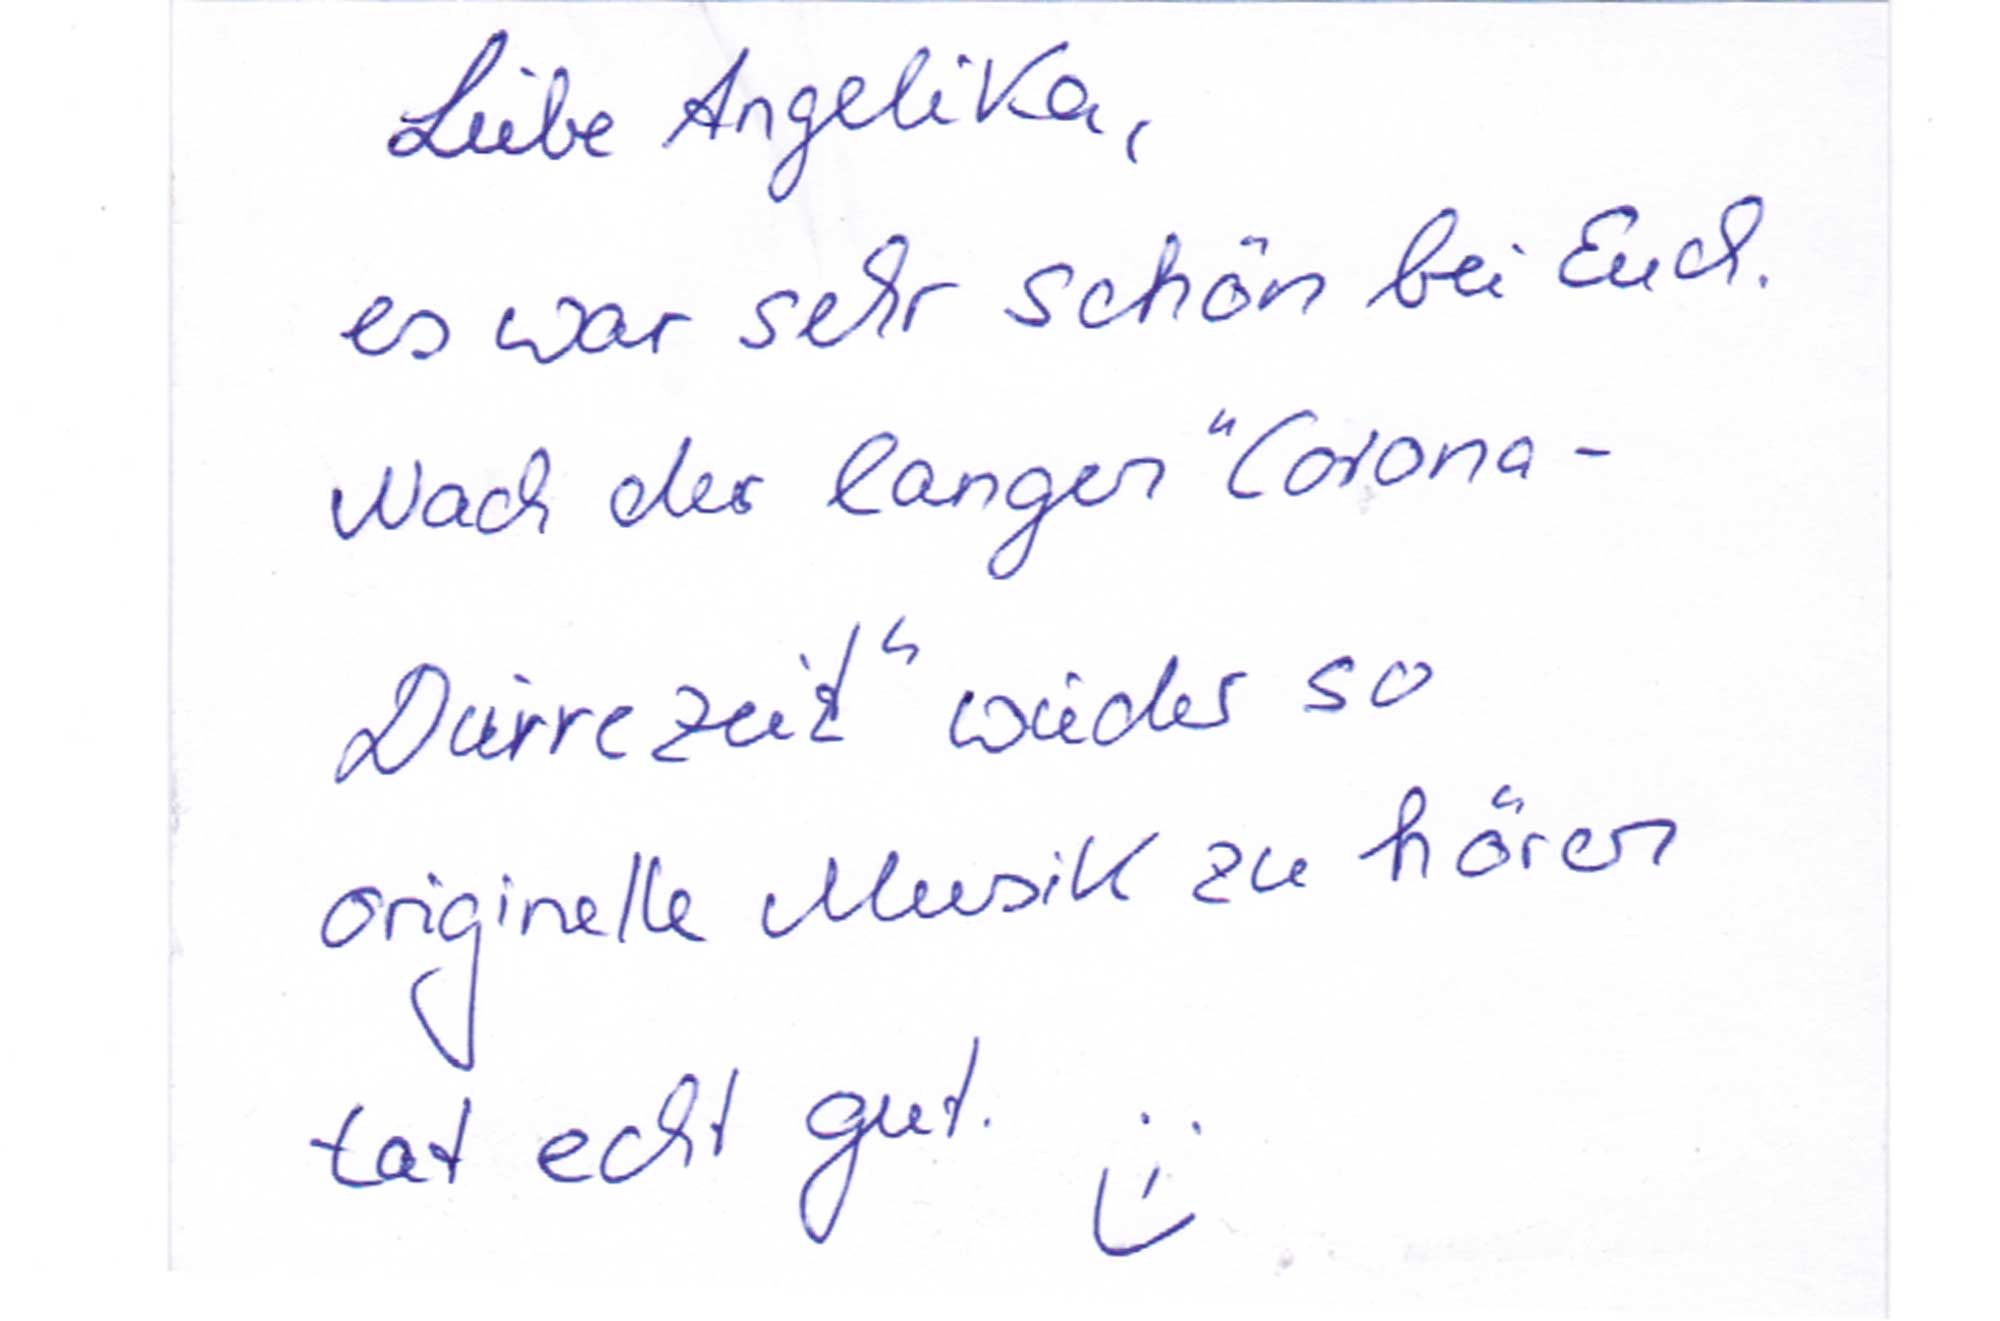 Liebe Angelika,
es war sehr schön bei Euch.
Nach der langen "Corona-
Dürrezeit" wieder so
originelle Musik zu hören
tat echt gut.